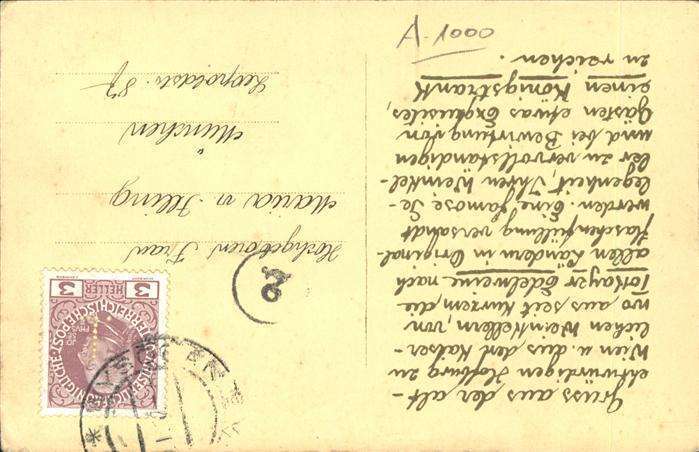 Gruss aus der alt-
ehrwürdigen Hofburg zu
Wien u. aus den Kaiser-
lichen Weinkellern, von
wo aus seit kurzem die
Tokayer Edelweine nach
allen Ländern in Original-
flaschenfüllung versandt
werden. Eine famose Ge-
legenheit, Ihren Weinkel-
ler zu vervollständigen
und bei Bewirtung von
Gästen etwas Exquisites,
einen Königstrank
zu reichen.
Hochgeboren Frau
Maria v. Illing
München
Leopoldstr. 87
3 HELLER 3
A-1000